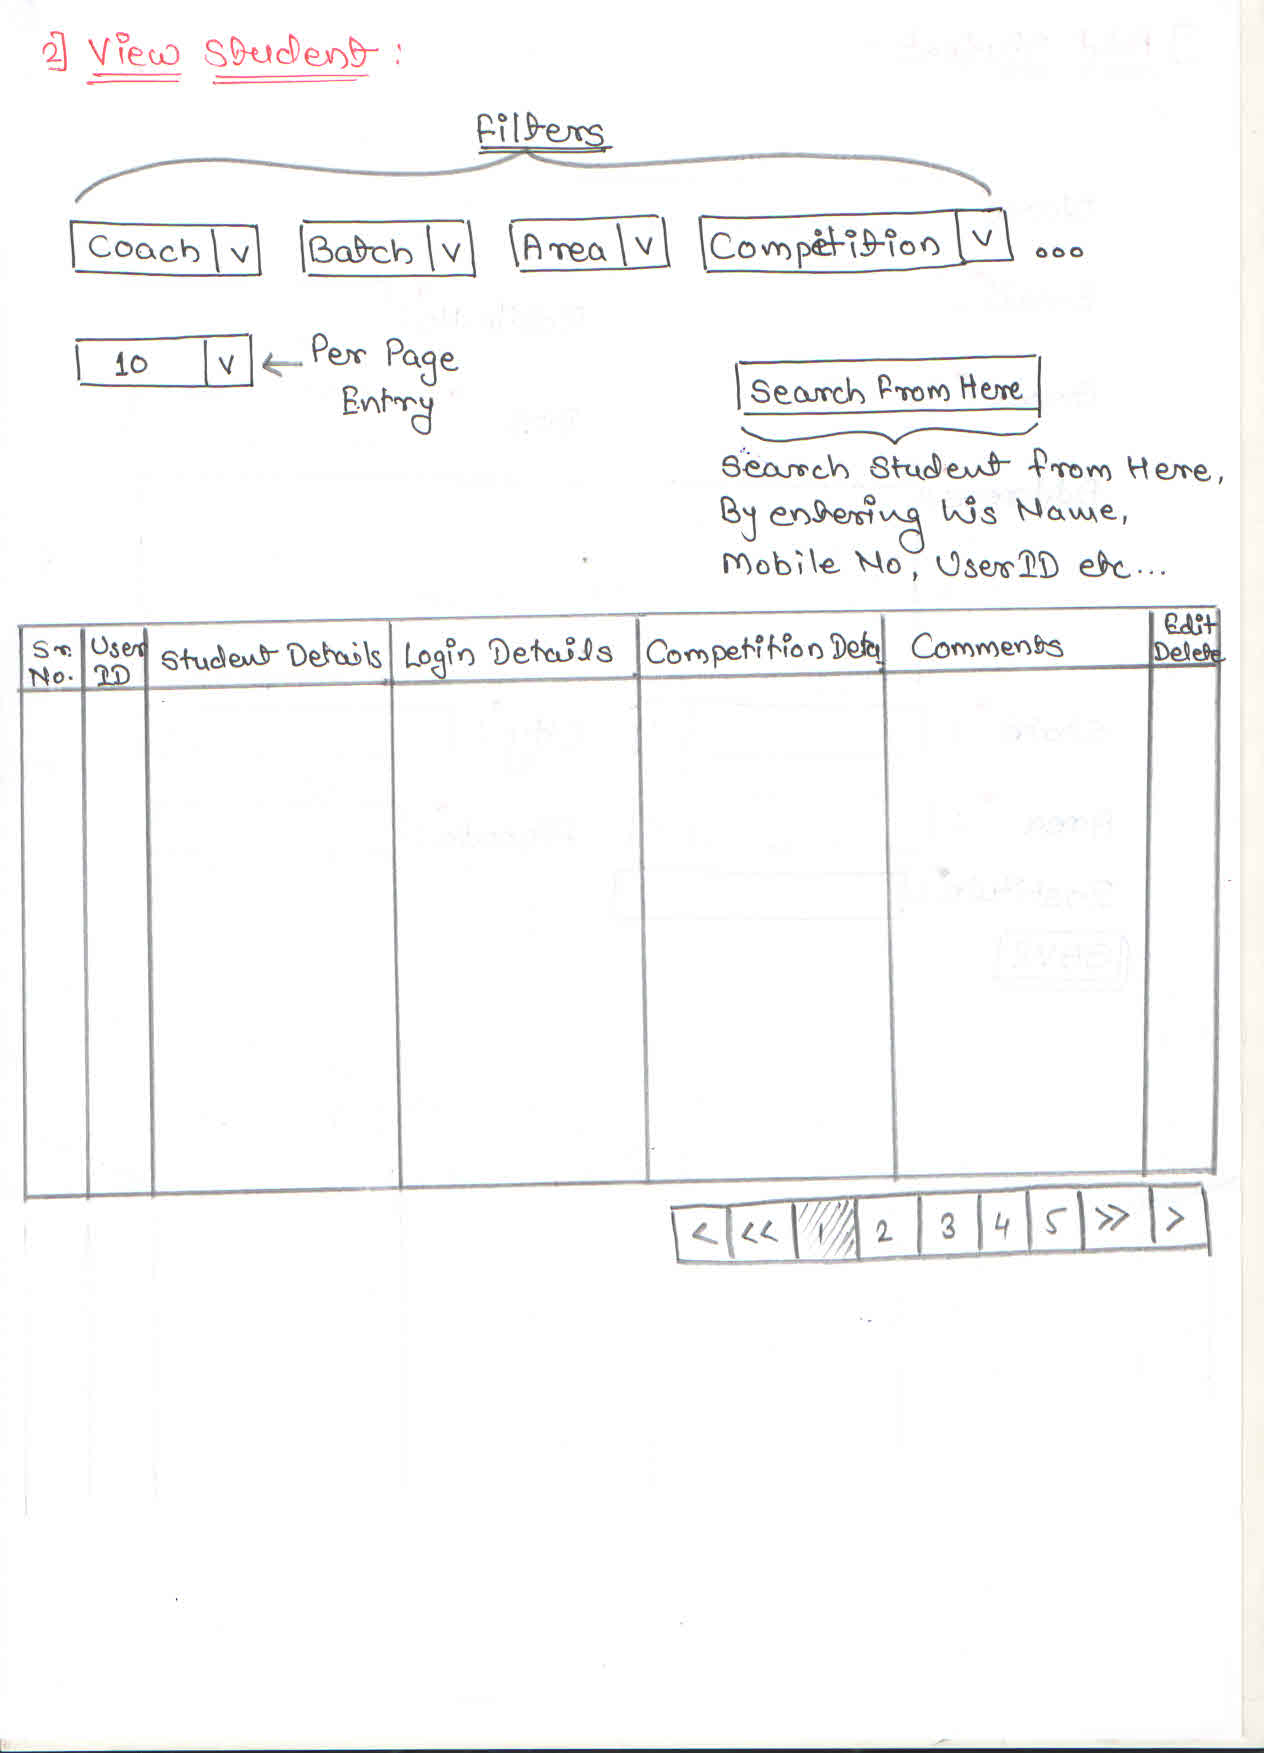 2] View Student :
Filters
Coach v Batch v Area v Competition v ...
10 v ← Per Page
Entry
Search From Here
Search Student from Here,
By entering his Name,
Mobile No, User ID etc...
Sr. No. User ID Student Details Login Details Competition Deta Comments Edit Delete
< << 1 2 3 4 5 >> >